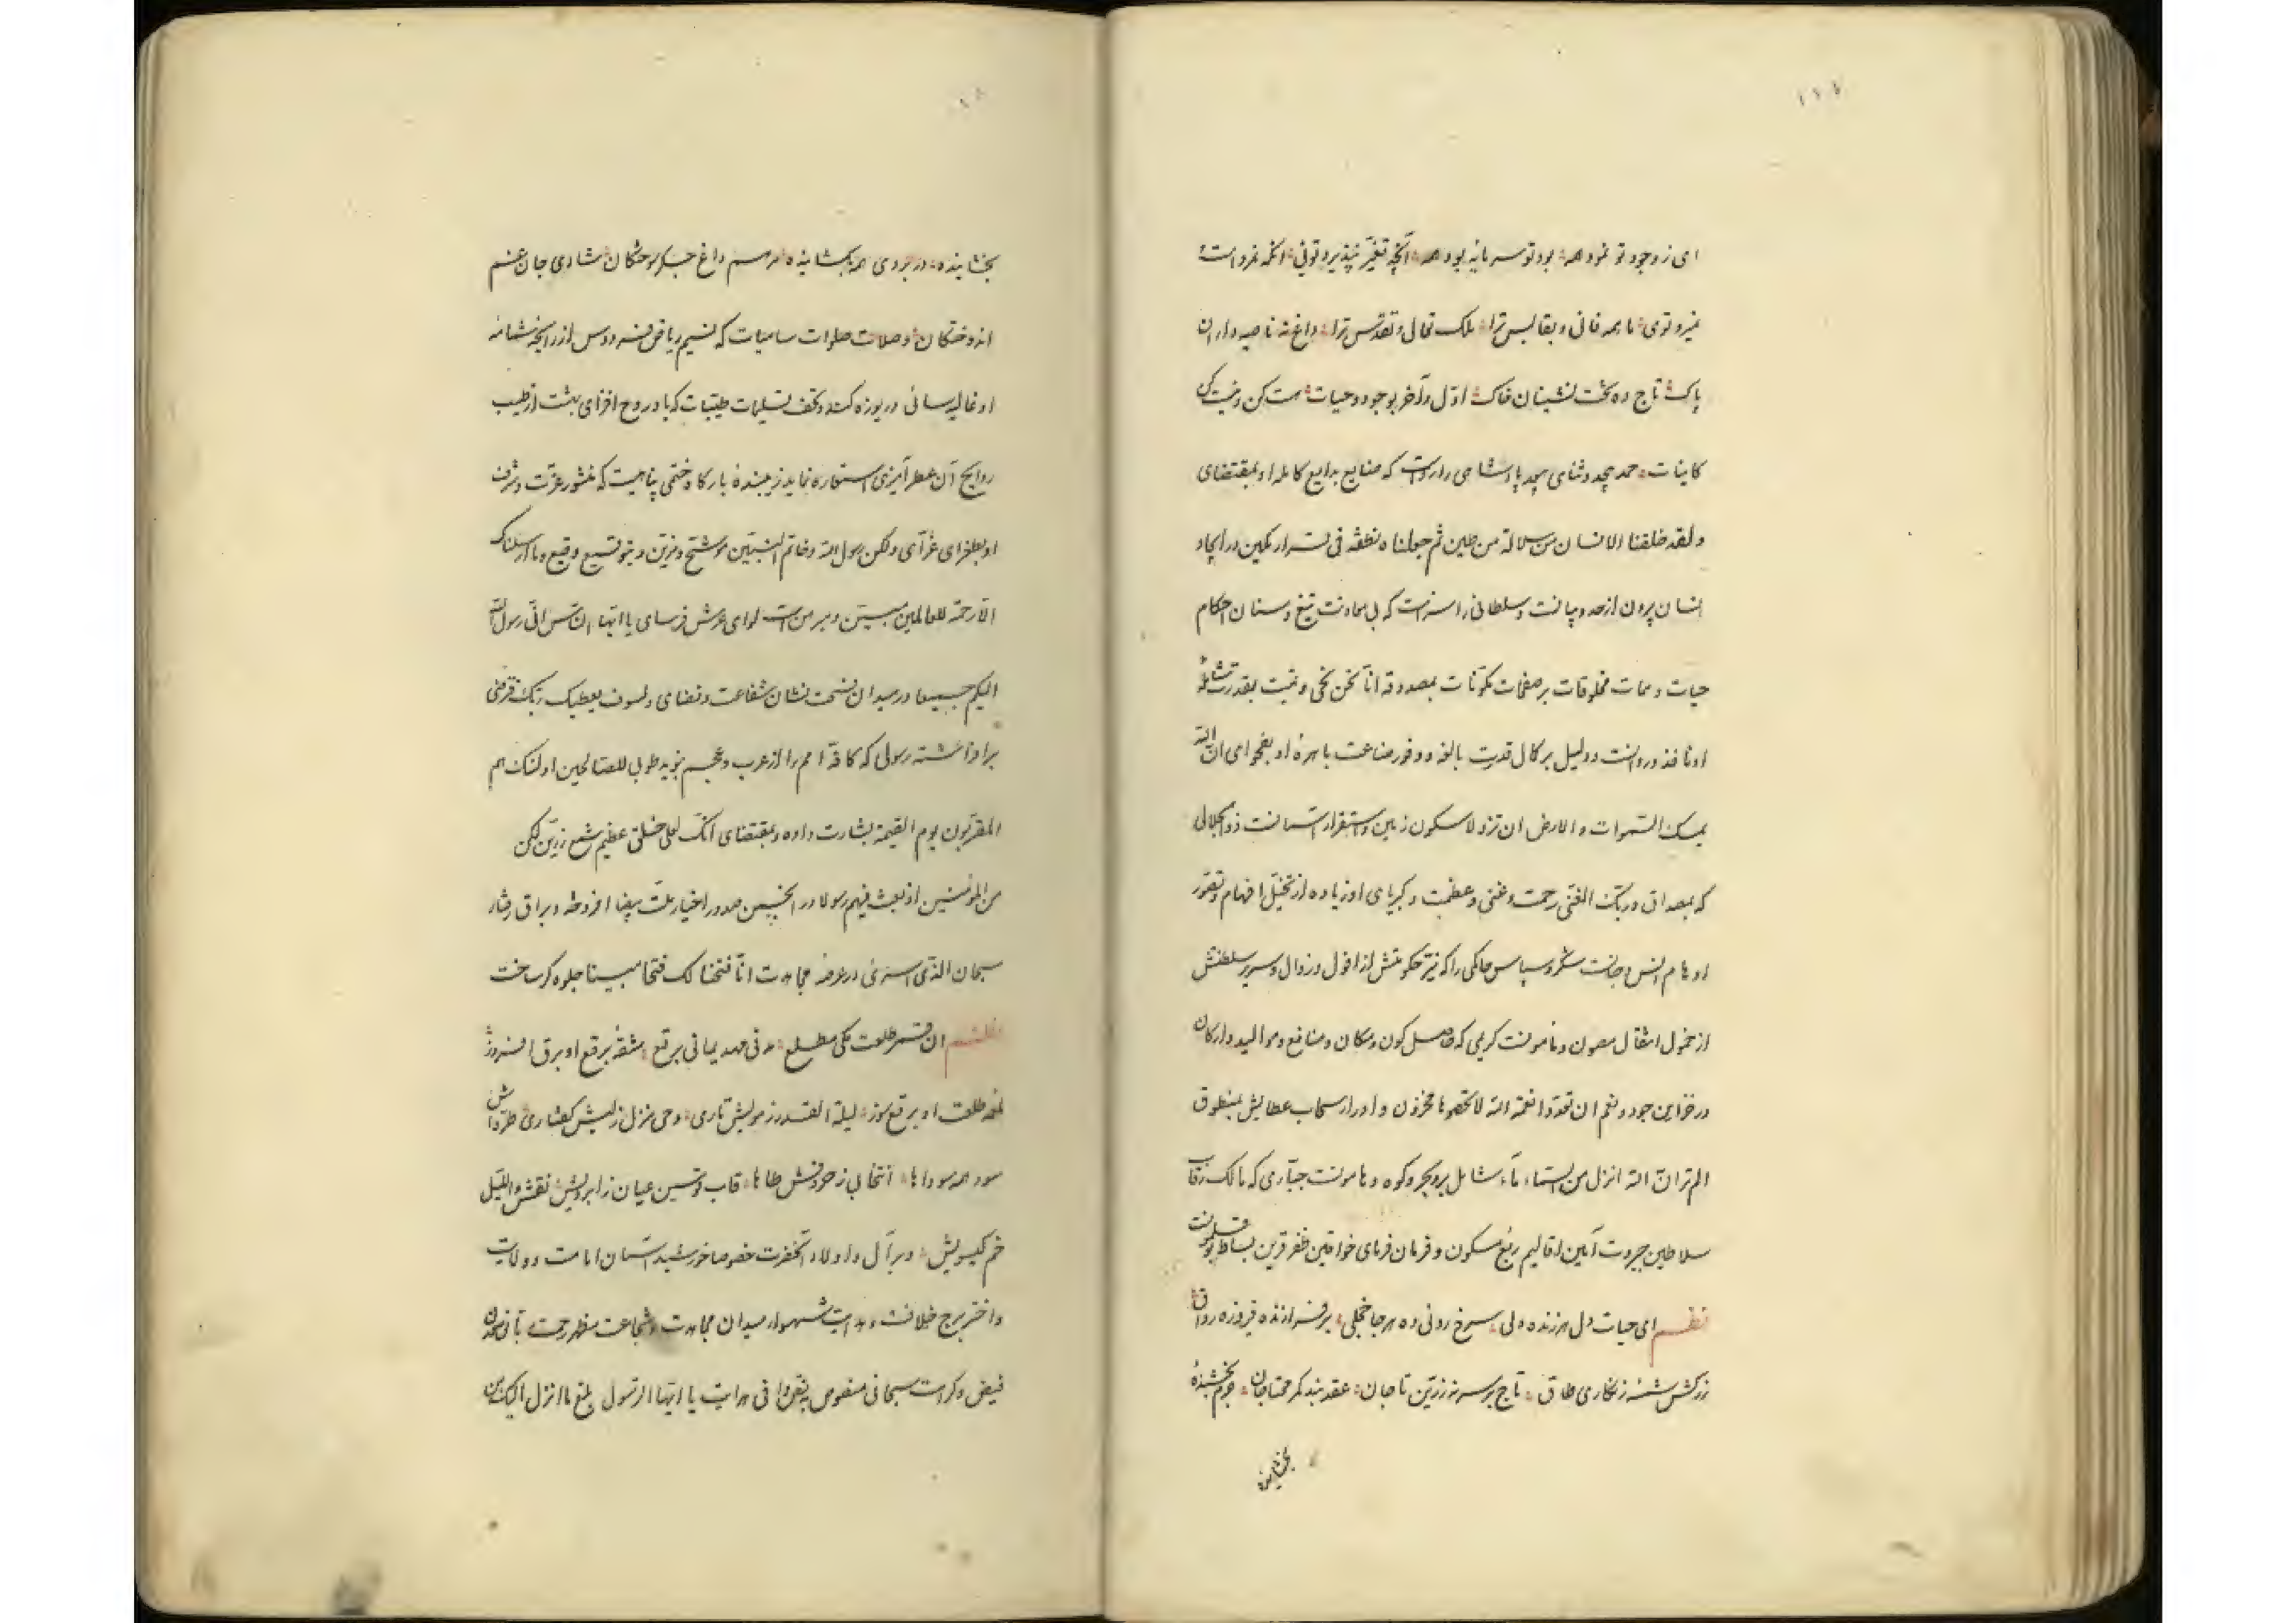 ای ز وجود تو نمود همه بود تو سرمایه بود همه آنچه تغیر نپذیرد تویی آنکه نمردست
نمیرد تویی ما همه فانی و بقا بس ترا ملک تعال و تقدس ترا داغ نه ناصیه داران
پاک تاج ده تخت نشینان خاک اول و آخر بوجود و حیات هست کن و نیست کن
کاینات حمد بیحد و ثنای بیعد پادشاهی را رواست که صنایع بدایع کامله او بمقتضای
ولقد خلقنا الانسان من سلالة من طین ثم جعلناه نطفة فی قرار مکین در ایجاد
انسان بیرون از حد و بیانست و سلطانی را سزاست که بی معاونت تیغ و سنان احکام
حیات و ممات مخلوقات بر صفحات مکونات بمصدوقه انا نحن نحیی و نمیت بقدرت شامله
او نافذ و روانست و دلیل بر کمال قدرت بالغه و وفور صناعت باهره او بفحوای ان الله
یمسک السموات والارض ان تزولا سکون زمین و استقرار آسمانست ذو الجلالی
که بمصداق و ربک الغنی رحمت و غنی و عظمت و کبریای او زیاده از تخیل افهام و تصور
اوهام انس و جانست شکر و سپاس حاکمی را که نیر حکومتش از افول و زوال و سریر سلطنتش
از خمول انتقال مصون و مامونست کریمی که حاصل کون و مکان و منافع و موالید و ارکان
در خزاین جود و نعم ان تعدوا نعمة الله لا تحصوها مخزون و ادرار سحاب عطایش بمنطوق
الم تر ان الله انزل من السماء ماء شامل بر و بحر و کوه و هامونست جباری که مالک رقاب
سلاطین جبروت آیین اقالیم ربع مسکون و فرمان فرمای خواقین ظفر قرین بساط بوقلمونست
نظم ای حیات دل هر زنده دلی سرخ رویی ده هر جا خجلی برفرازنده فیروزه رواق
زرکش شمسه زنگاری طاق تاج بر سر نه زرین تاجان عقد بند کمر محتاجان جرم بخشنده
بخشاینده
بخشاینده در بروی همه بگشاینده مرهم داغ جگر سوختگان شادی جان غم
اندوختگان و صلات صلوات سامیات که نسیم ریاض فردوس از رایحه شمامه
او غالیه سائی دریوزه کند و تحف تسلیمات طیبات که باد روح افزای بهشت از طیب
روایح آن عطر آمیزی استعاره نماید زیبنده بارگاه ختمی پناهیست که منشور عزت و شرف
او بطغرای غرّای ولکن رسول الله و خاتم النبیین موشح و مزین و بتوقیع وقیع وما ارسلناک
الا رحمة للعالمین مبین و مبرهن است لوای عرش فرسای یا ایها الناس انی رسول الله
الیکم جمیعا در میدان فسحت نشان شفاعت و فضای ولسوف یعطیک ربک فترضی
برافراشته رسولی که کافه امم را از عرب و عجم بنوید طوبی للصالحین اولئک هم
المقربون یوم القیمة بشارت داده و بمقتضای انک لعلی خلق عظیم شمع زرین لگن
من المؤمنین اذ بعث فیهم رسولا در انجمن صدور اخیار ملت بیضا افروخته و براق رفتار
سبحان الذی اسری در عرصه مجاهدت انا فتحنا لک فتحا مبینا جلوه گر ساخت
نظم آن قمر طلعت مکی مطلع مدنی مهد یمانی برقع مشقه برقع او برق افروز
لمعه طلعت او برقع سوز لیلة القدر ز مویش تاری وحی منزل ز لبش گفتاری طره اش
سود همه سوداها انتخابی ز حروفش طاها قاب قوسین عیان ز ابرویش نقش واللیل
خم گیسویش و بر آل و اولاد آنحضرت خصوصا خورشید آسمان امامت و ولایت
و اختر برج خلافت و هدایت شهسوار میدان مجاهدت و شجاعت مظهر رحمت
فیض و کرامت سبحانی منصوص یا ایها الرسول بلغ ما انزل الیک من